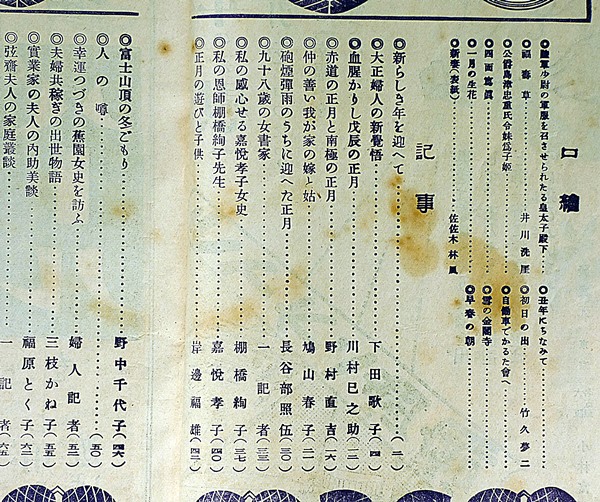 口繪
◎陸軍少尉の軍服を召させられたる皇太子殿下
◎福壽草……井川洗厓
◎公爵島津忠重氏令妹爲子姫
◎四面寫眞
◎一月の生花
◎新春(表紙)……佐佐木林風
◎丑年にちなみて
◎初日の出……竹久夢二
◎自働車でかるた會へ
◎雪の金閣寺
◎早春の朝
記事
◎新らしき年を迎へて……(一)
◎大正婦人の新覺悟……下田歌子(四)
◎血腥かりし戊辰の正月……川村巳之助(一三)
◎赤道の正月と南極の正月……野村直吉(一六)
◎仲の善い我が家の嫁と姑……鳩山春子(二一)
◎砲煙彈雨のうちに迎へた正月……長谷部照伍(三〇)
◎九十八歳の女書家……一記者(三三)
◎私の感心せる嘉悦孝子女史……棚橋絢子(三七)
◎私の恩師棚橋絢子先生……嘉悦孝子(四〇)
◎正月の遊びと子供……岸邊福雄(四二)
◎富士山頂の冬ごもり……野中千代子(四六)
◎人の噂……(五〇)
◎幸運つづきの蕉園女史を訪ふ……婦人記者(五二)
◎夫婦共稼ぎの出世物語……三枝かね子(五五)
◎實業家の夫人の內助美談……福原とく子(六二)
◎弦齋夫人の家庭叢談……一記者(六五)